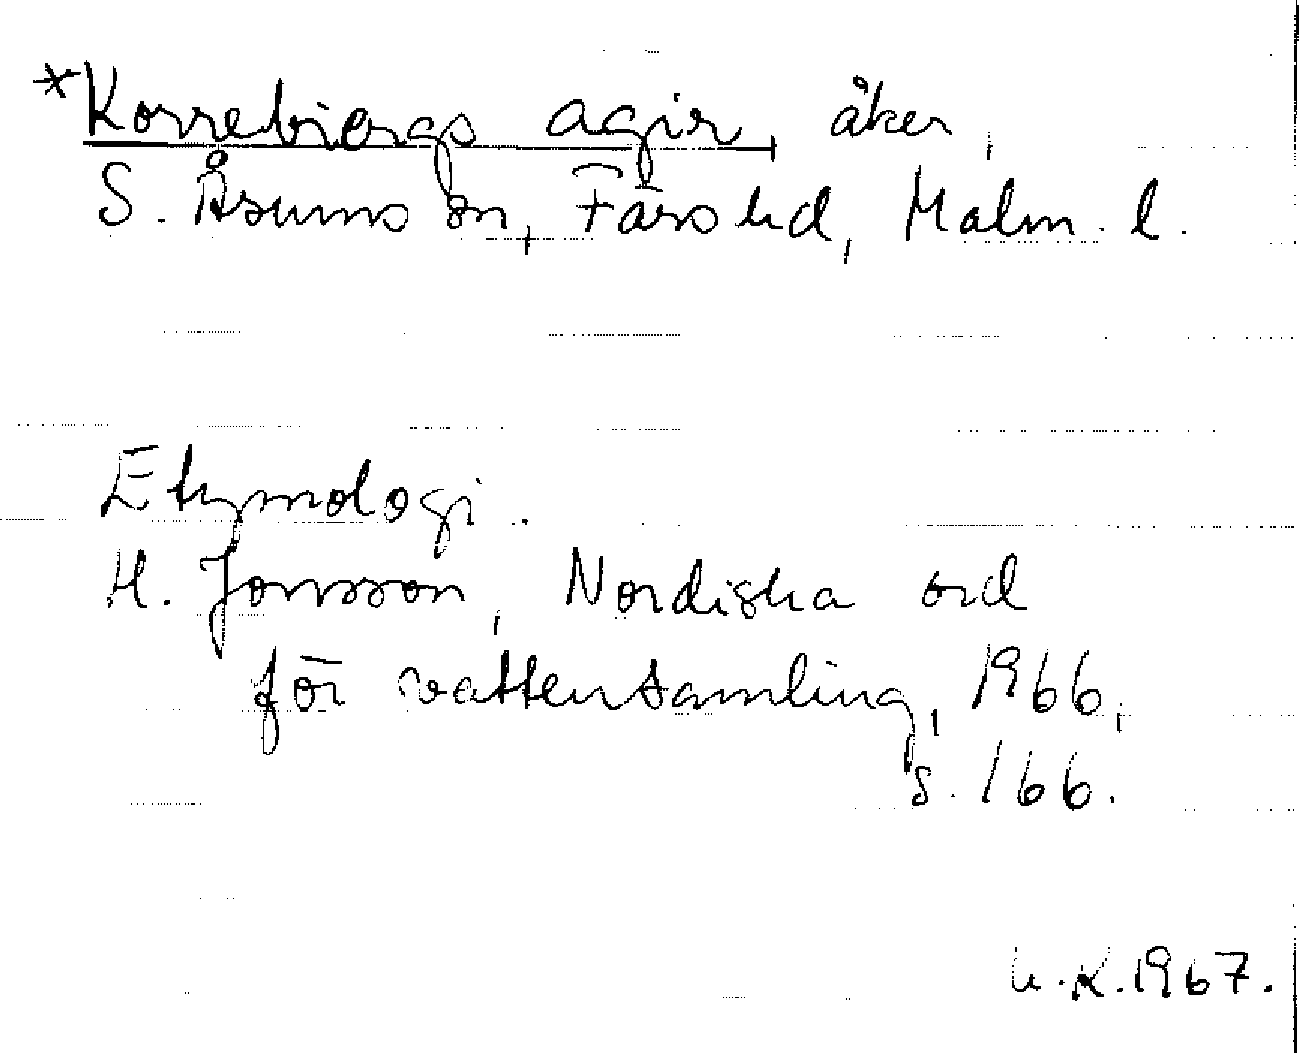 *Korrebiergs agir, åker,
S. Åsums sn, Färs hd, Malm. l.
Etymologi.
H. Jonsson, Nordiska ord
för vattensamling, 1966,
s. 166.
U.K. 1967.